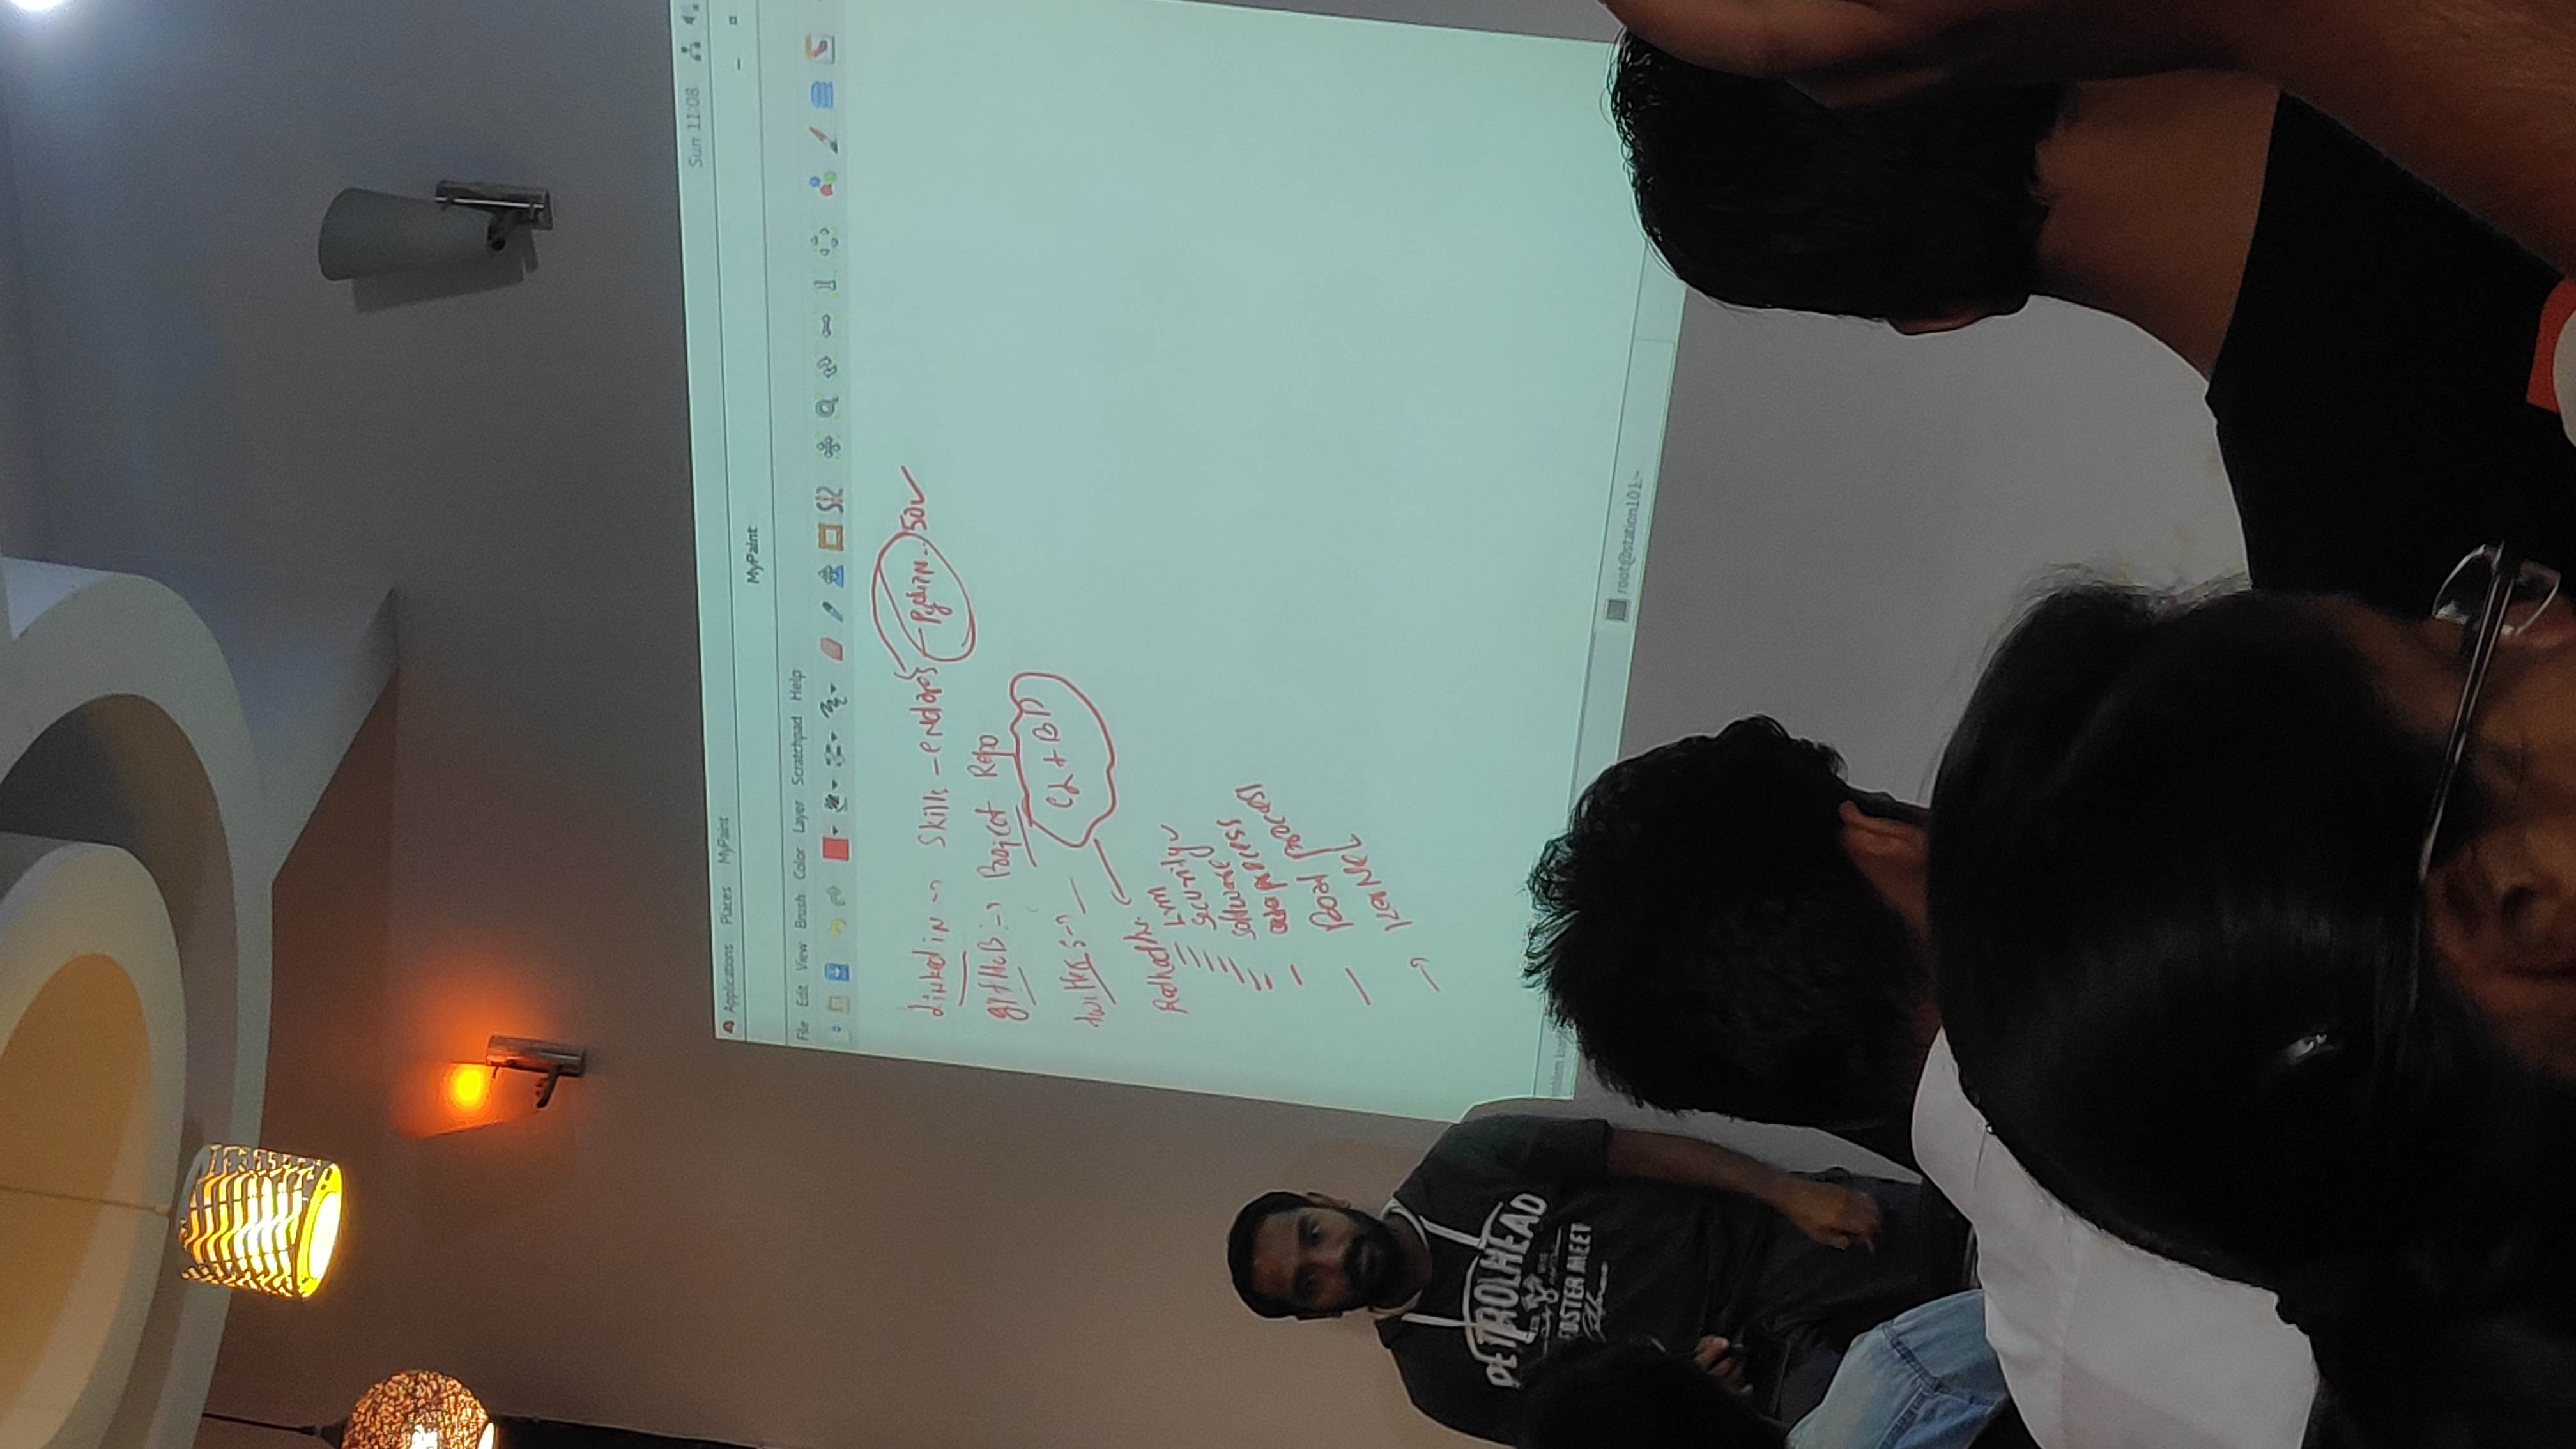 Sun 11:08
Applications Places MyPaint
MyPaint
File Edit View Brush Color Layer Scratchpad Help
Linked in → Skills - endores - Python.. 50 ✓
gitHuB :→ Project Repo
twitter :→ —
CL + BD
LVM
Security ✓
Software
process
Boot process
→ KerNeL
root@station101:~
PETROLHEAD
FOSTER MEET